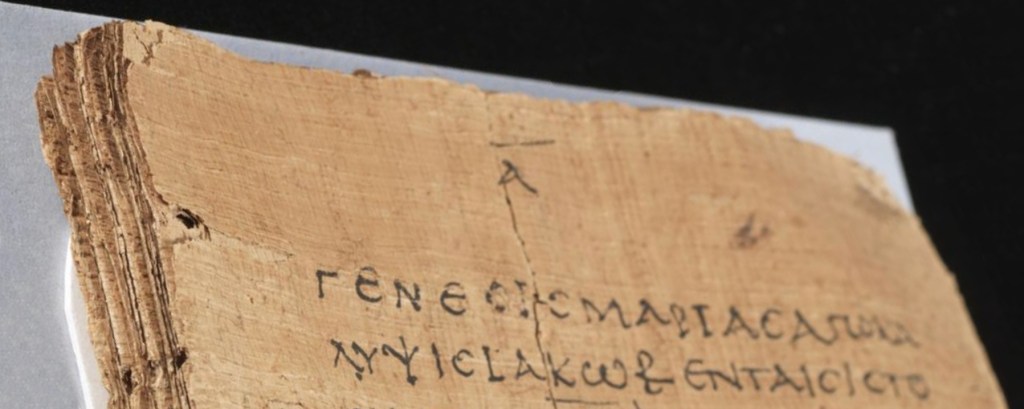 Α̅
ΓΕΝΕϹΙϹΜΑΡΙΑϹΑΠΟΚΑ
ΛΥΨΙϹΙΑΚΩΒΕΝΤΑΙϹΙϹΤΟ